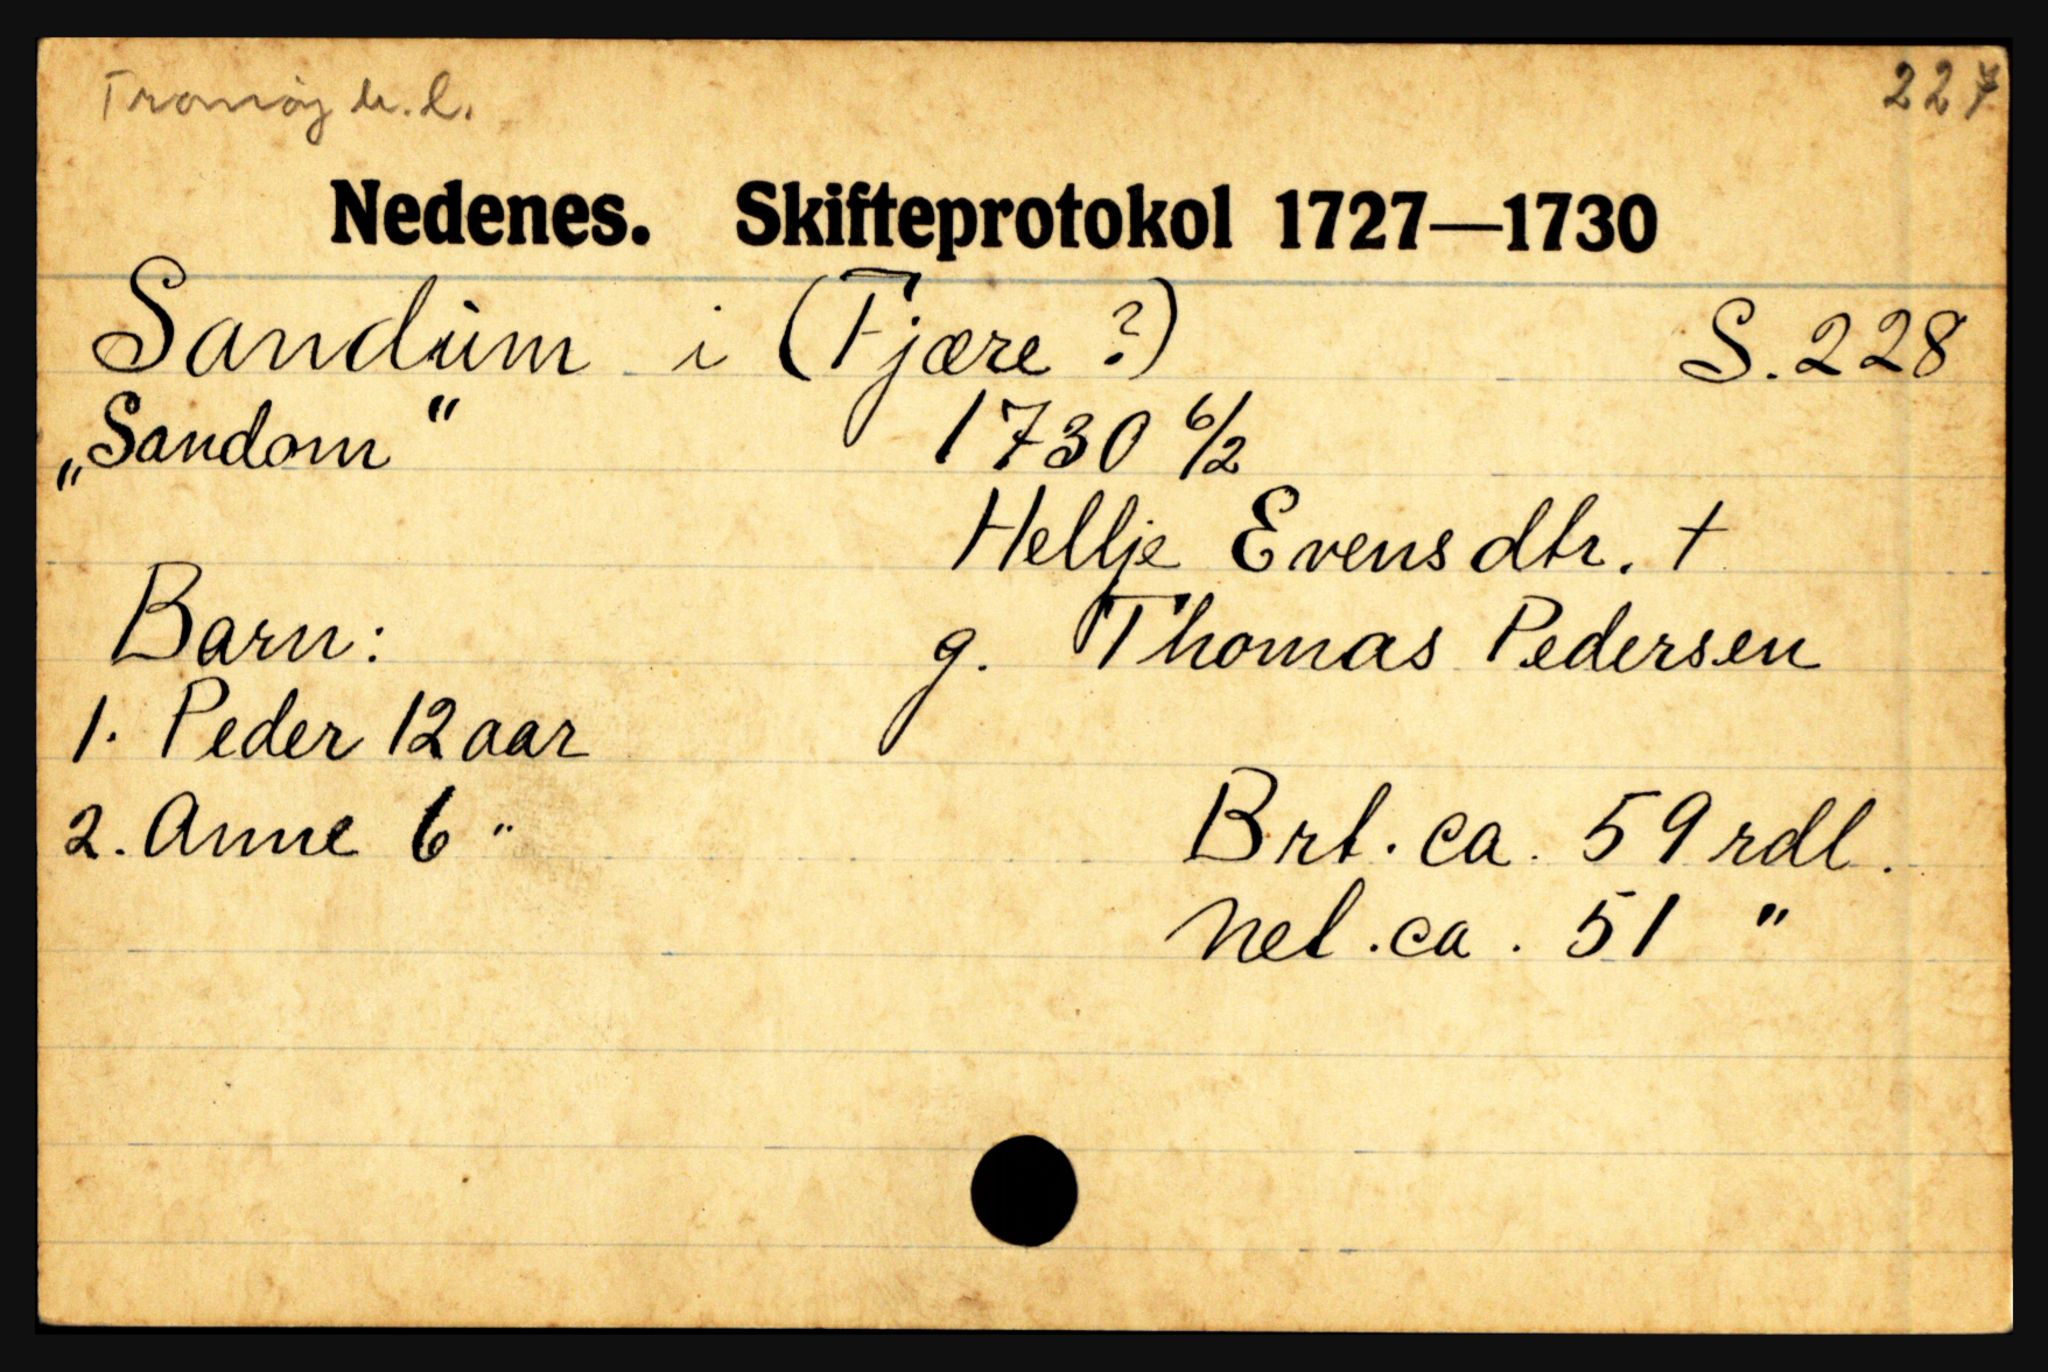 Tromøy u.l.
227
Nedenes. Skifteprotokol 1727—1730
Sandum i (Fjære ?) S. 228
„Sandom“ 1730 6/2
Hellje Evensdtr. †
Barn: g. Thomas Pedersen
1. Peder 12 aar
2. Anne 6 " Brt. ca. 59 rdl.
Net. ca. 51 "